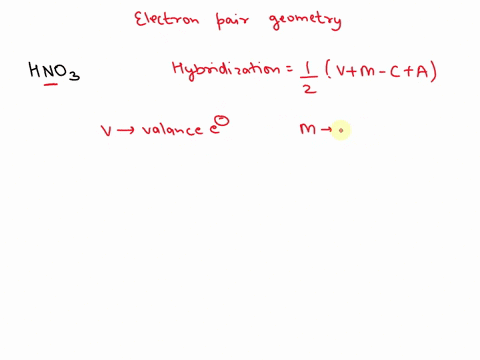 Electron pair geometry
HNO3 Hybridization = 1/2 (V+M-C+A)
V → valance e⊖ M →